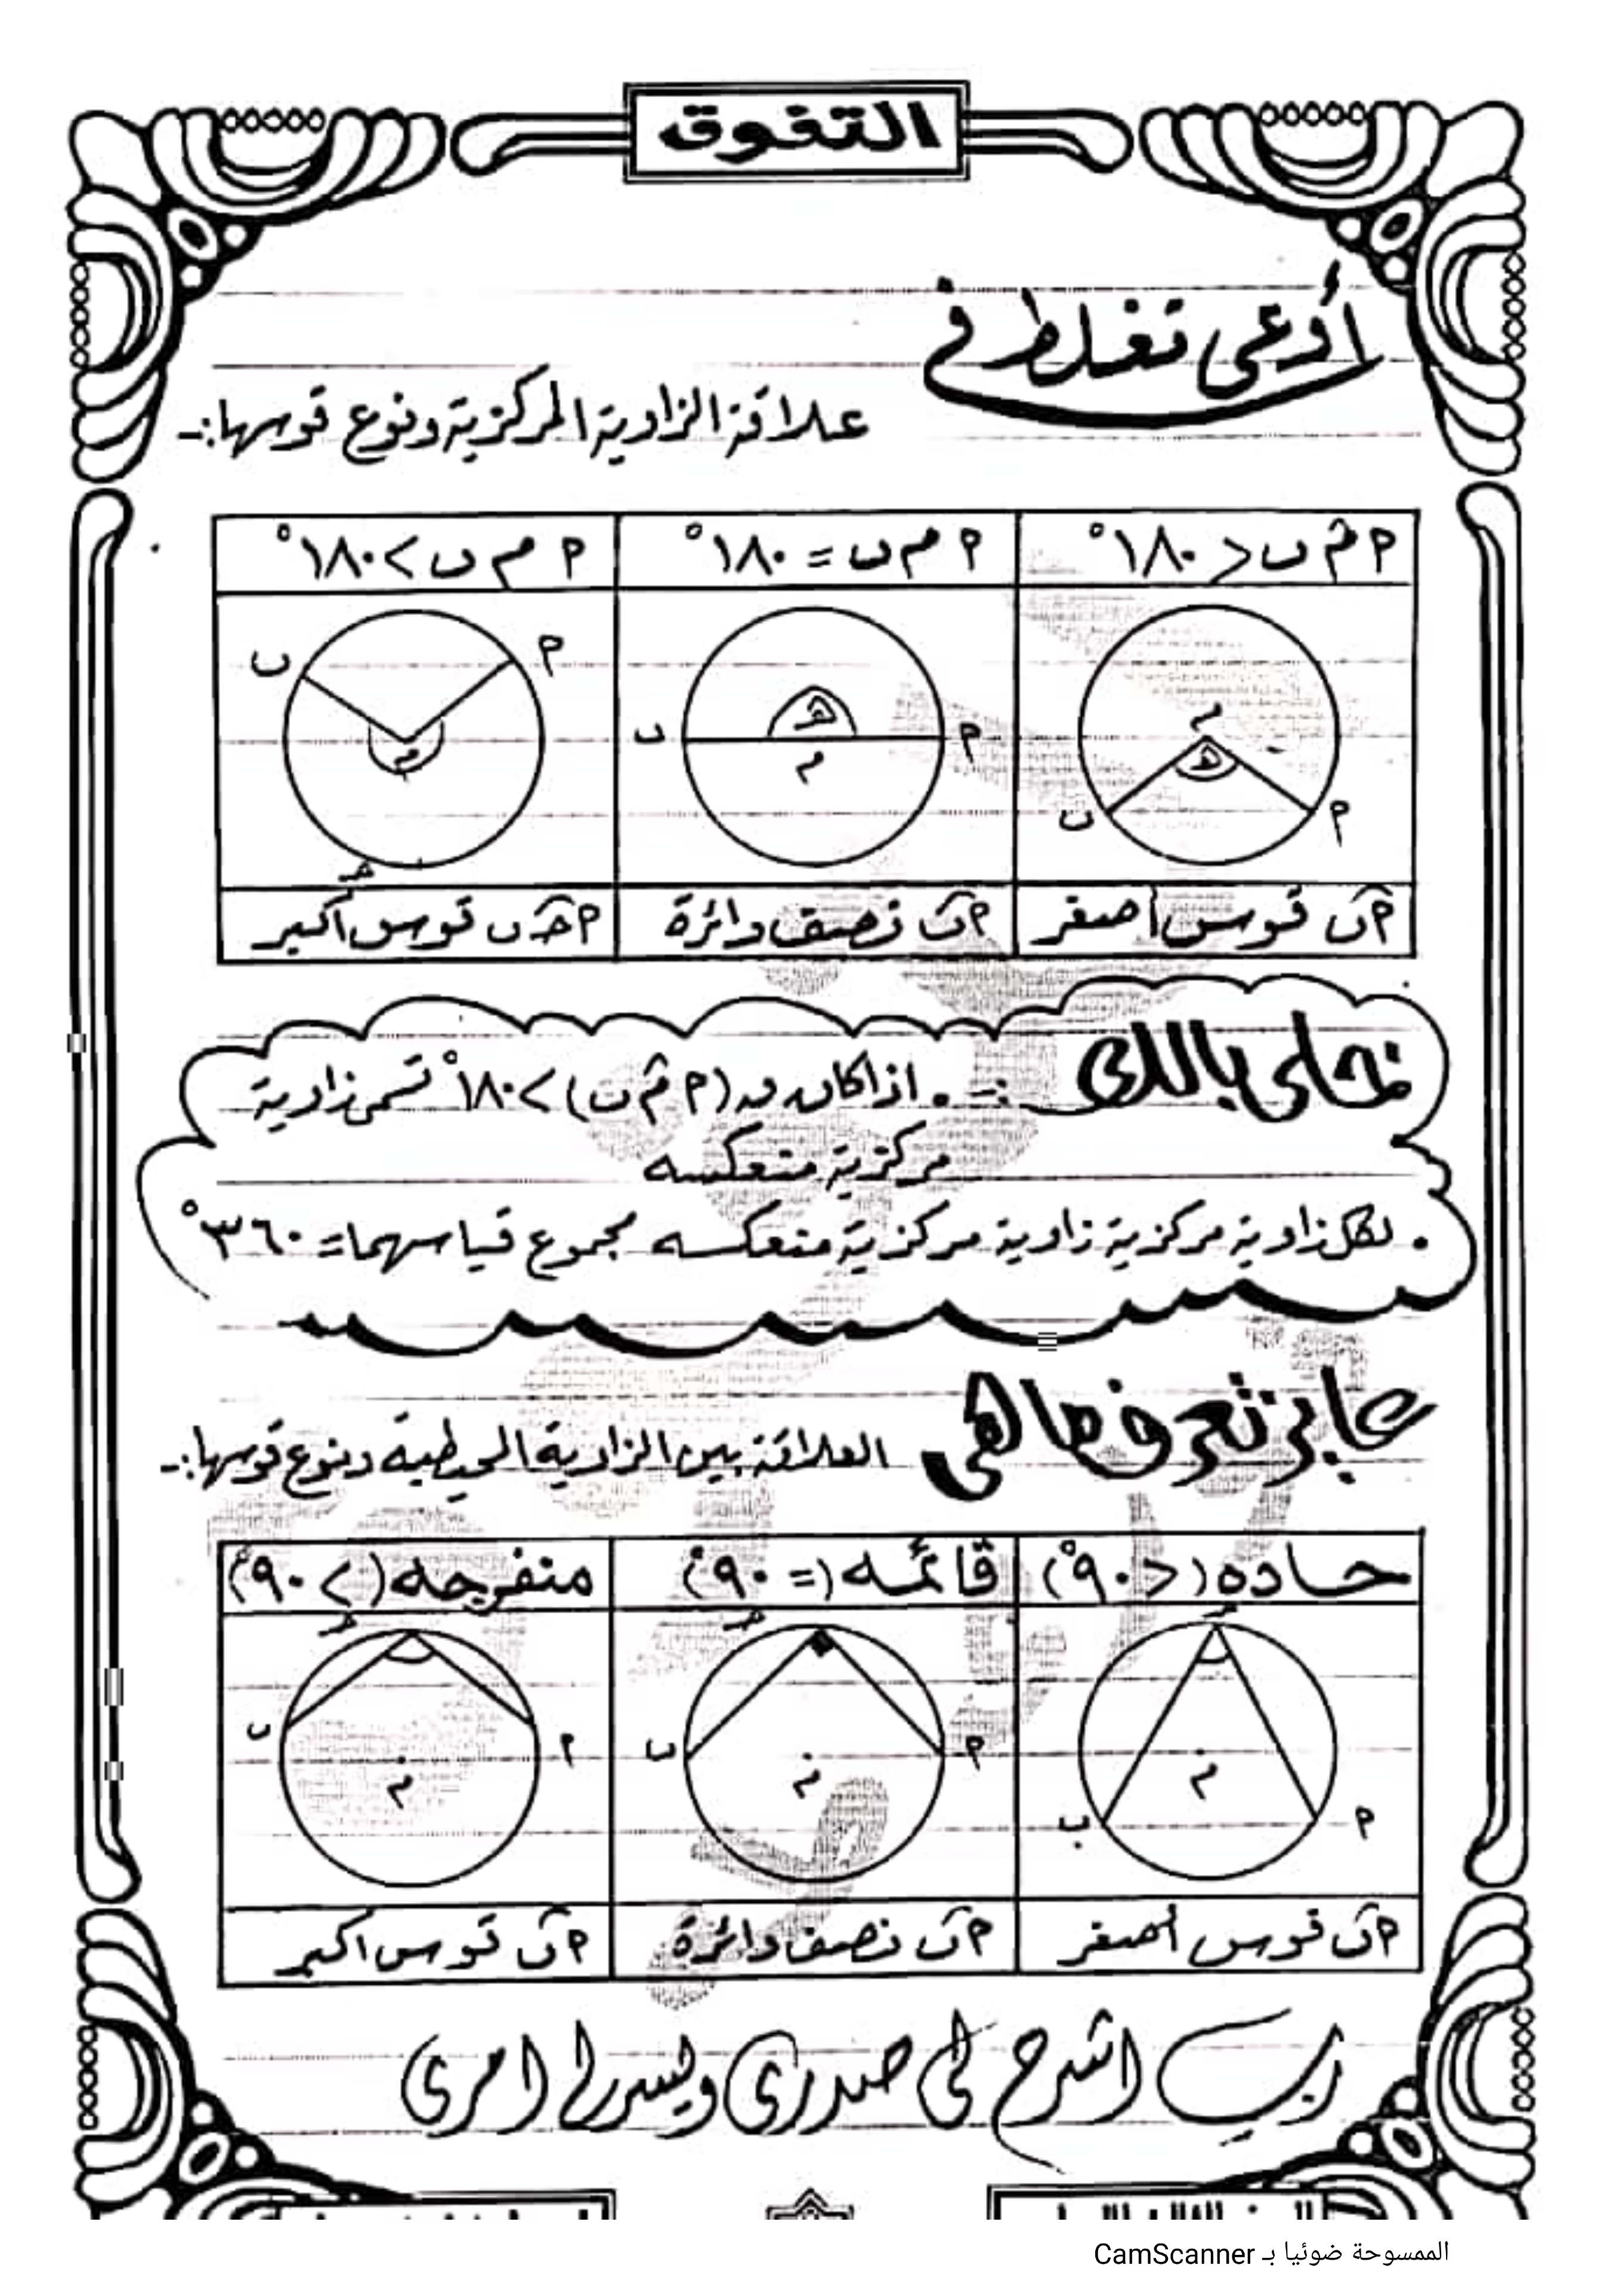 التفوق
أوعى تغلط في
علاقة الزاوية المركزية ونوع قوسها:-
م م̂ ب < ١٨٠°
م م ب = ١٨٠°
م م ب > ١٨٠°
م هـ م ب
م هـ م ب
م م ب حـ
م ب قوس أصغر
م ب نصف دائرة
م حـ ب قوس أكبر
تخلى بالك :- • اذا كان ق (م م̂ ب) > ١٨٠° تسمى زاوية
مركزية منعكسه
• لكل زاوية مركزية زاوية مركزية منعكسه مجموع قياسهما = ٣٦٠°
عايز تعرف ما هى العلاقة بين الزاوية المحيطية ونوع قوسها:-
حاده (< ٩٠°)
قائمه (= ٩٠°)
منفرجه (> ٩٠°)
حـ م م ب
حـ م م ب
حـ م م ب
م ب قوس أصغر
م ب نصف دائرة
م ب قوس أكبر
رب اشرح لى صدرى ويسر لى امرى
الممسوحة ضوئيا بـ CamScanner